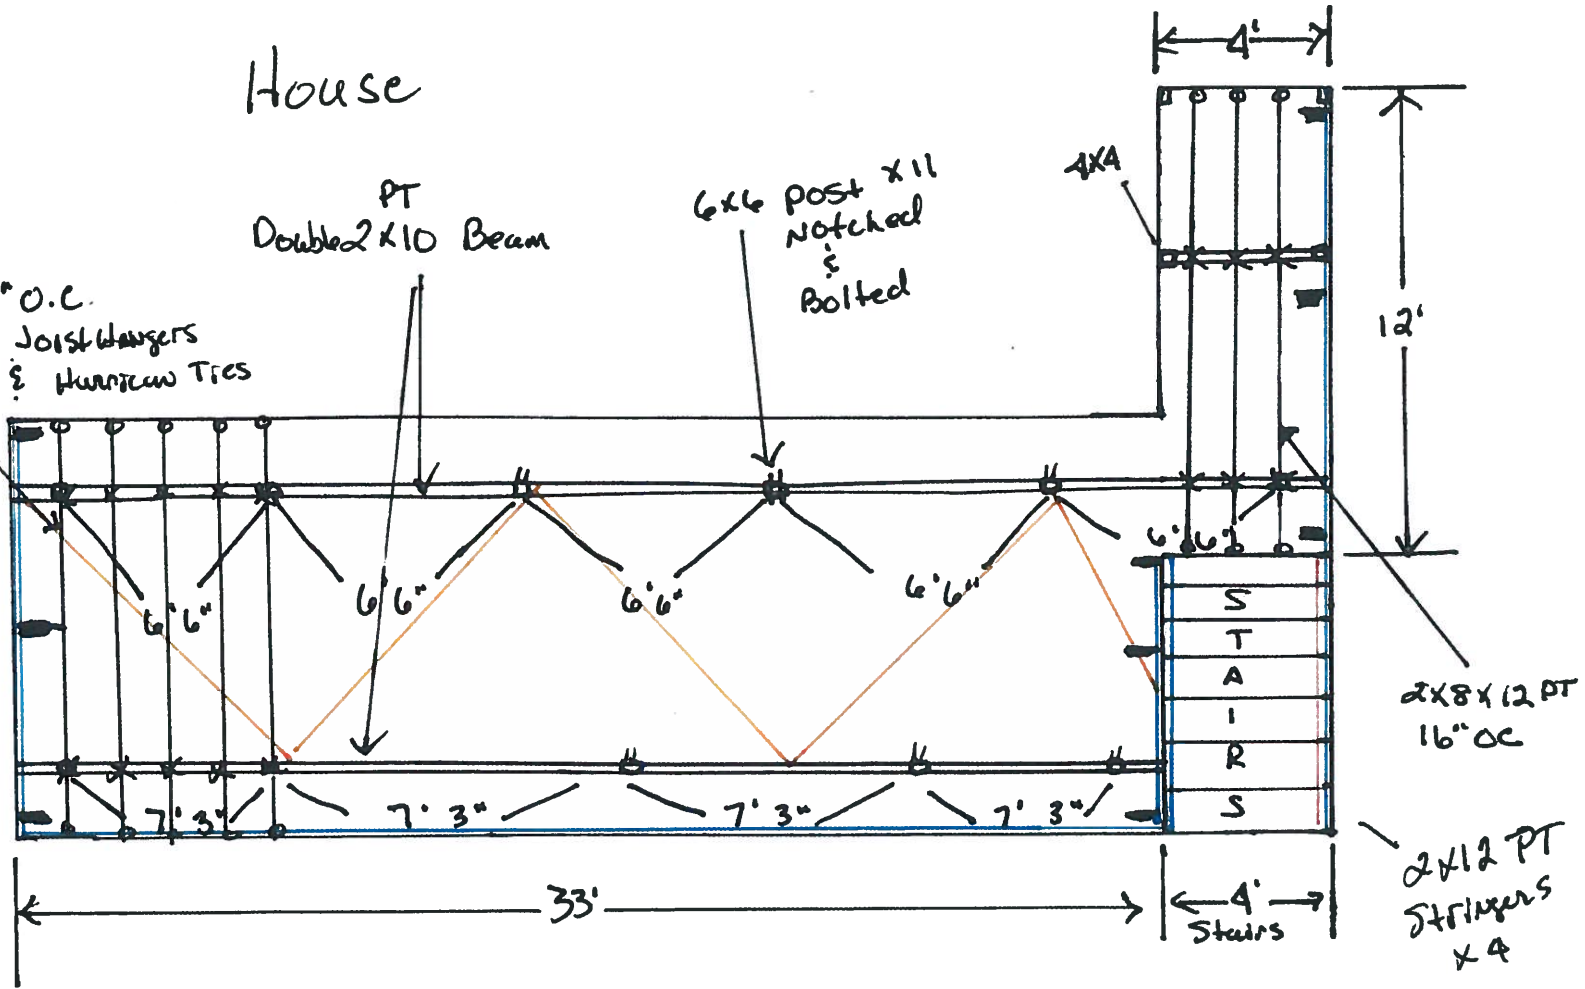 4'
House
PT
Double 2x10 Beam
6x6 Post x11
Notched
&
Bolted
4x4
" O.C.
Joist Hangers
& Hurrican Ties
12'
6'6"
6'6"
6'6"
6'6"
6'6"
STAIRS
2x8x12 PT
16" OC
7'3"
7'3"
7'3"
7'3"
2x12 PT
Stringers
x4
33'
4'
Stairs